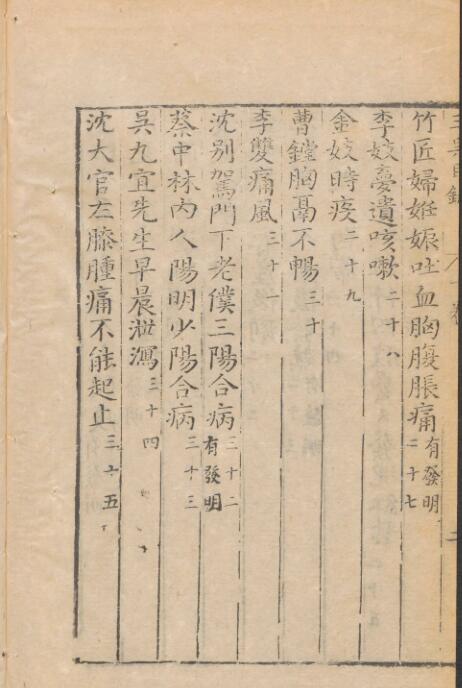 三吳目錄 一卷 二
竹匠婦妊娠吐血胸腹脹痛 有發明 二十七
李妓憂遺咳嗽 二十八
金妓時疫 二十九
曹鏜胸鬲不暢 三十
李雙痛風 三十一
沈別駕門下老僕三陽合病 有發明 三十二
蔡中林內人陽明少陽合病 三十三
吳九宜先生早晨泄瀉 三十四
沈大官左膝腫痛不能起止 三十五